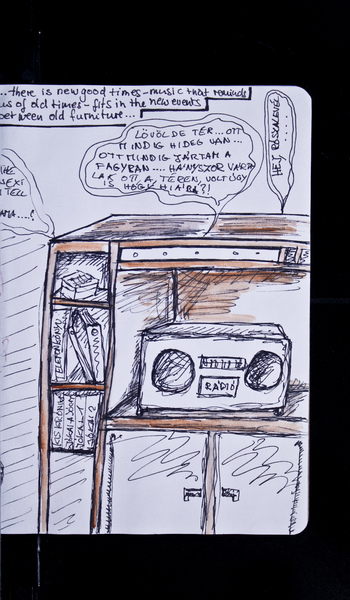 ...there is new good times-music that reminds
us of old times-fits in the new events
between old furniture...
LÖVÖLDE TÉR...OTT
MINDIG HIDEG VAN...
OTT MINDIG JÁRTAM A
FAGYBAN.... HÁNYSZOR VÁRTA
LAK OTT, A TÉREN, VOLT ÚGY
IS HOGY HIÁBA?!
HEJ, RÓZSALEVÉL
NEXT
TELL
TELEFONKÖNYV
RÁDIÓ